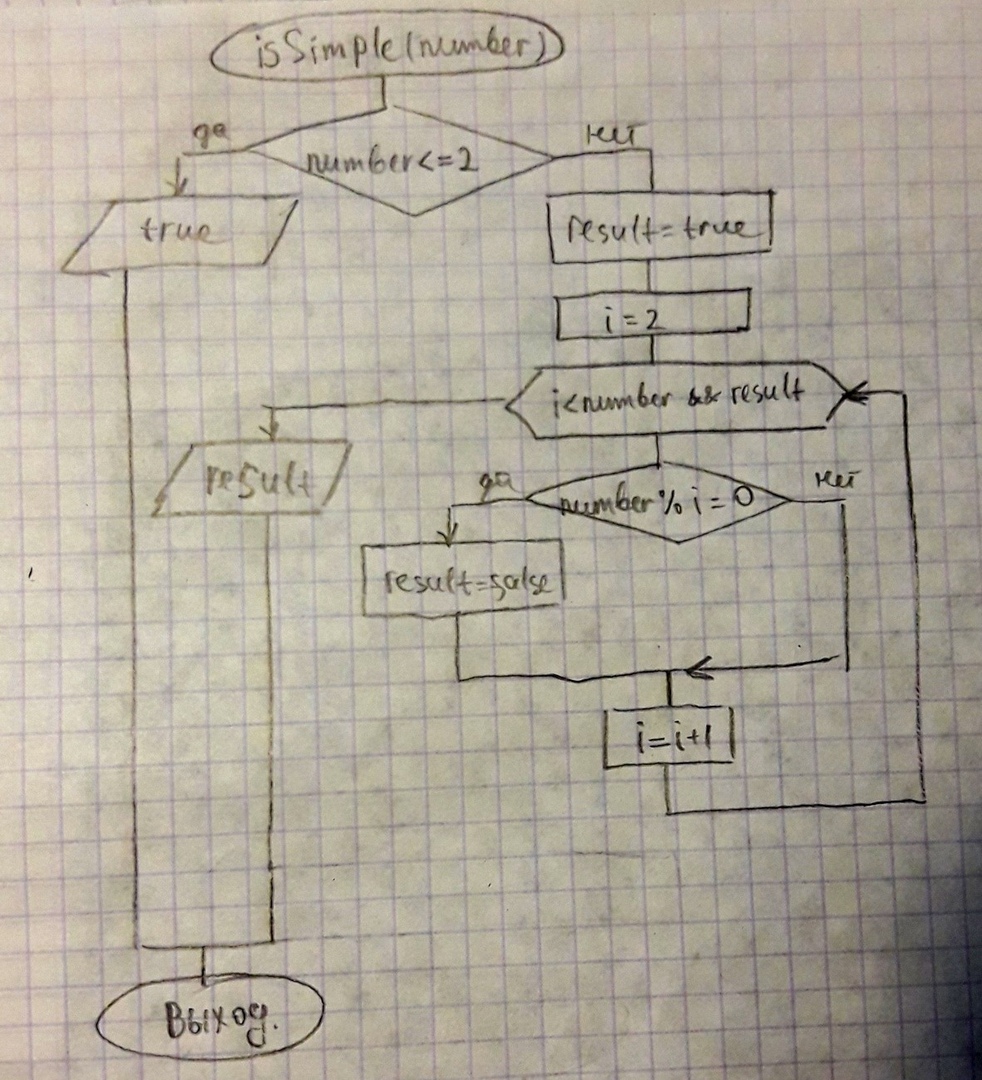 isSimple(number)
да
нет
number<=2
true
result=true
i=2
i<number && result
result
да
нет
number % i = 0
result=false
i=i+1
Выход.